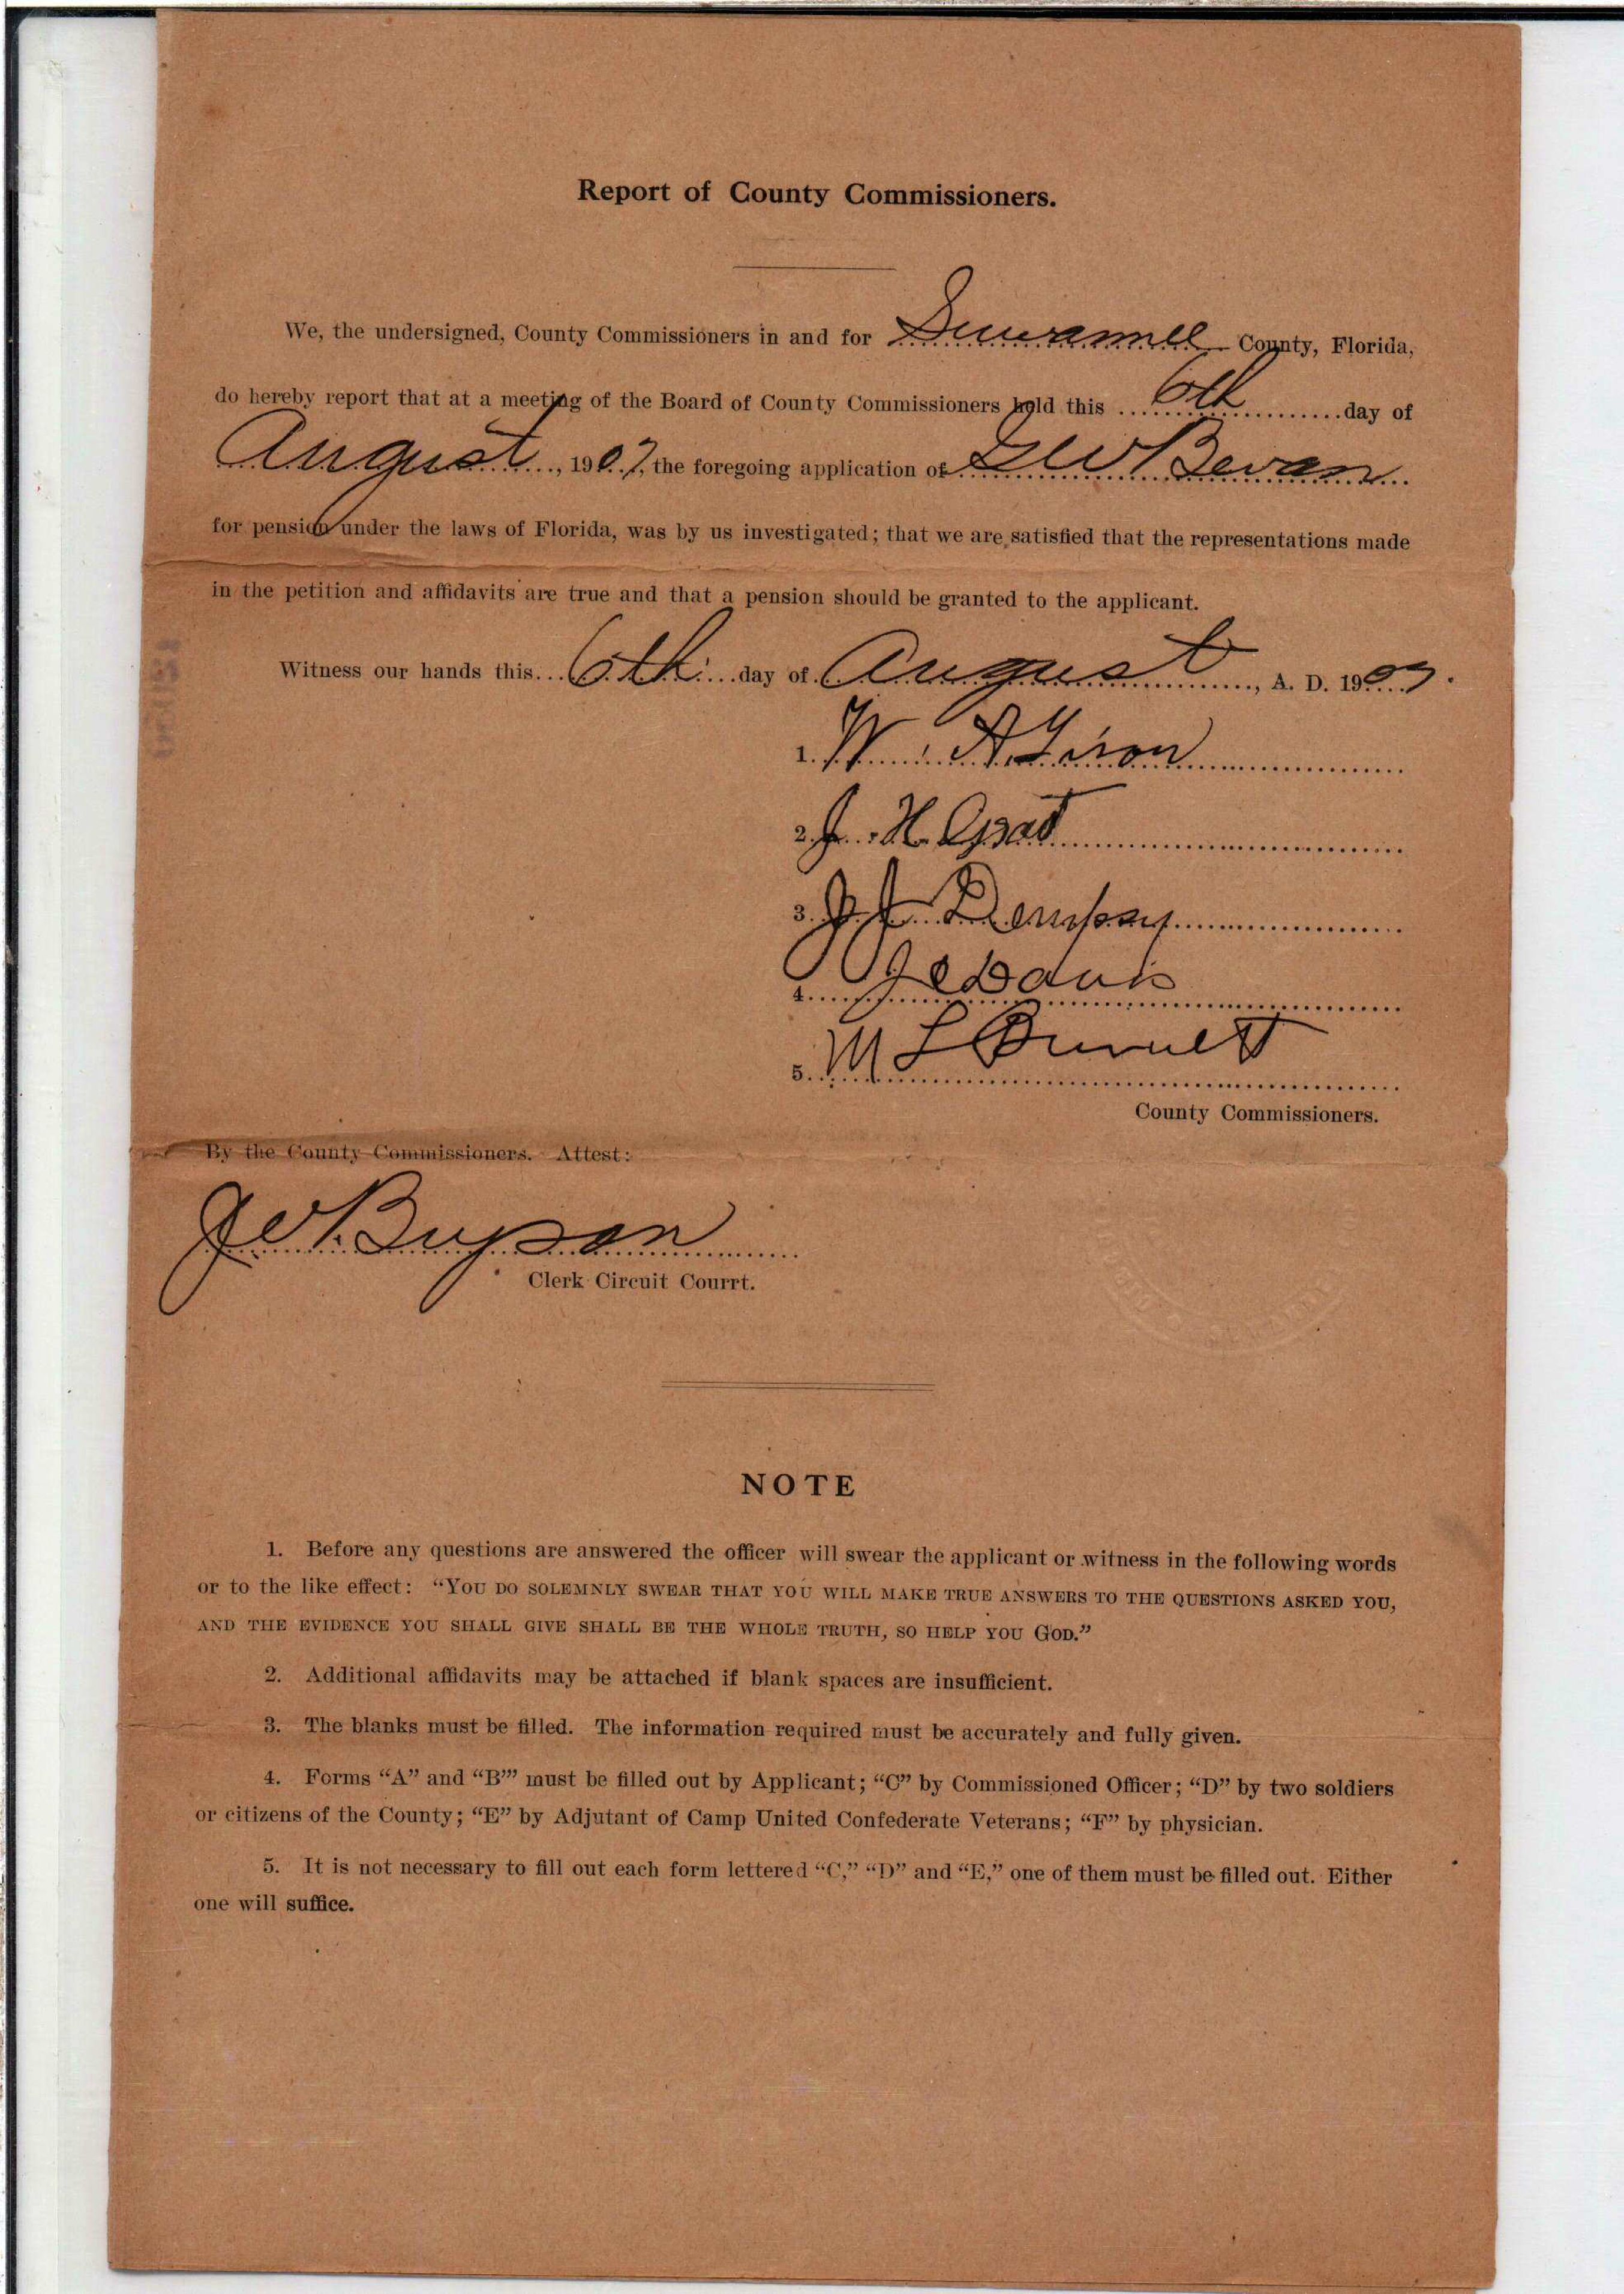 Report of County Commissioners.
We, the undersigned, County Commissioners in and for Suwannee County, Florida,
do hereby report that at a meeting of the Board of County Commissioners held this 6th day of
August, 1907, the foregoing application of W Bevan
for pension under the laws of Florida, was by us investigated; that we are satisfied that the representations made
in the petition and affidavits are true and that a pension should be granted to the applicant.
Witness our hands this 6th day of August, A. D. 1907.
1. W. A.
2. J. H.
3. Dempsey
4. J E Davis
5. M L Burnett
County Commissioners.
By the County Commissioners. Attest:
J W Bryson
Clerk Circuit Courrt.
NOTE
1. Before any questions are answered the officer will swear the applicant or witness in the following words
or to the like effect: “YOU DO SOLEMNLY SWEAR THAT YOU WILL MAKE TRUE ANSWERS TO THE QUESTIONS ASKED YOU,
AND THE EVIDENCE YOU SHALL GIVE SHALL BE THE WHOLE TRUTH, SO HELP YOU GOD.”
2. Additional affidavits may be attached if blank spaces are insufficient.
3. The blanks must be filled. The information required must be accurately and fully given.
4. Forms “A” and “B”’ must be filled out by Applicant; “C” by Commissioned Officer; “D” by two soldiers
or citizens of the County; “E” by Adjutant of Camp United Confederate Veterans; “F” by physician.
5. It is not necessary to fill out each form lettered “C,” “D” and “E,” one of them must be filled out. Either
one will suffice.